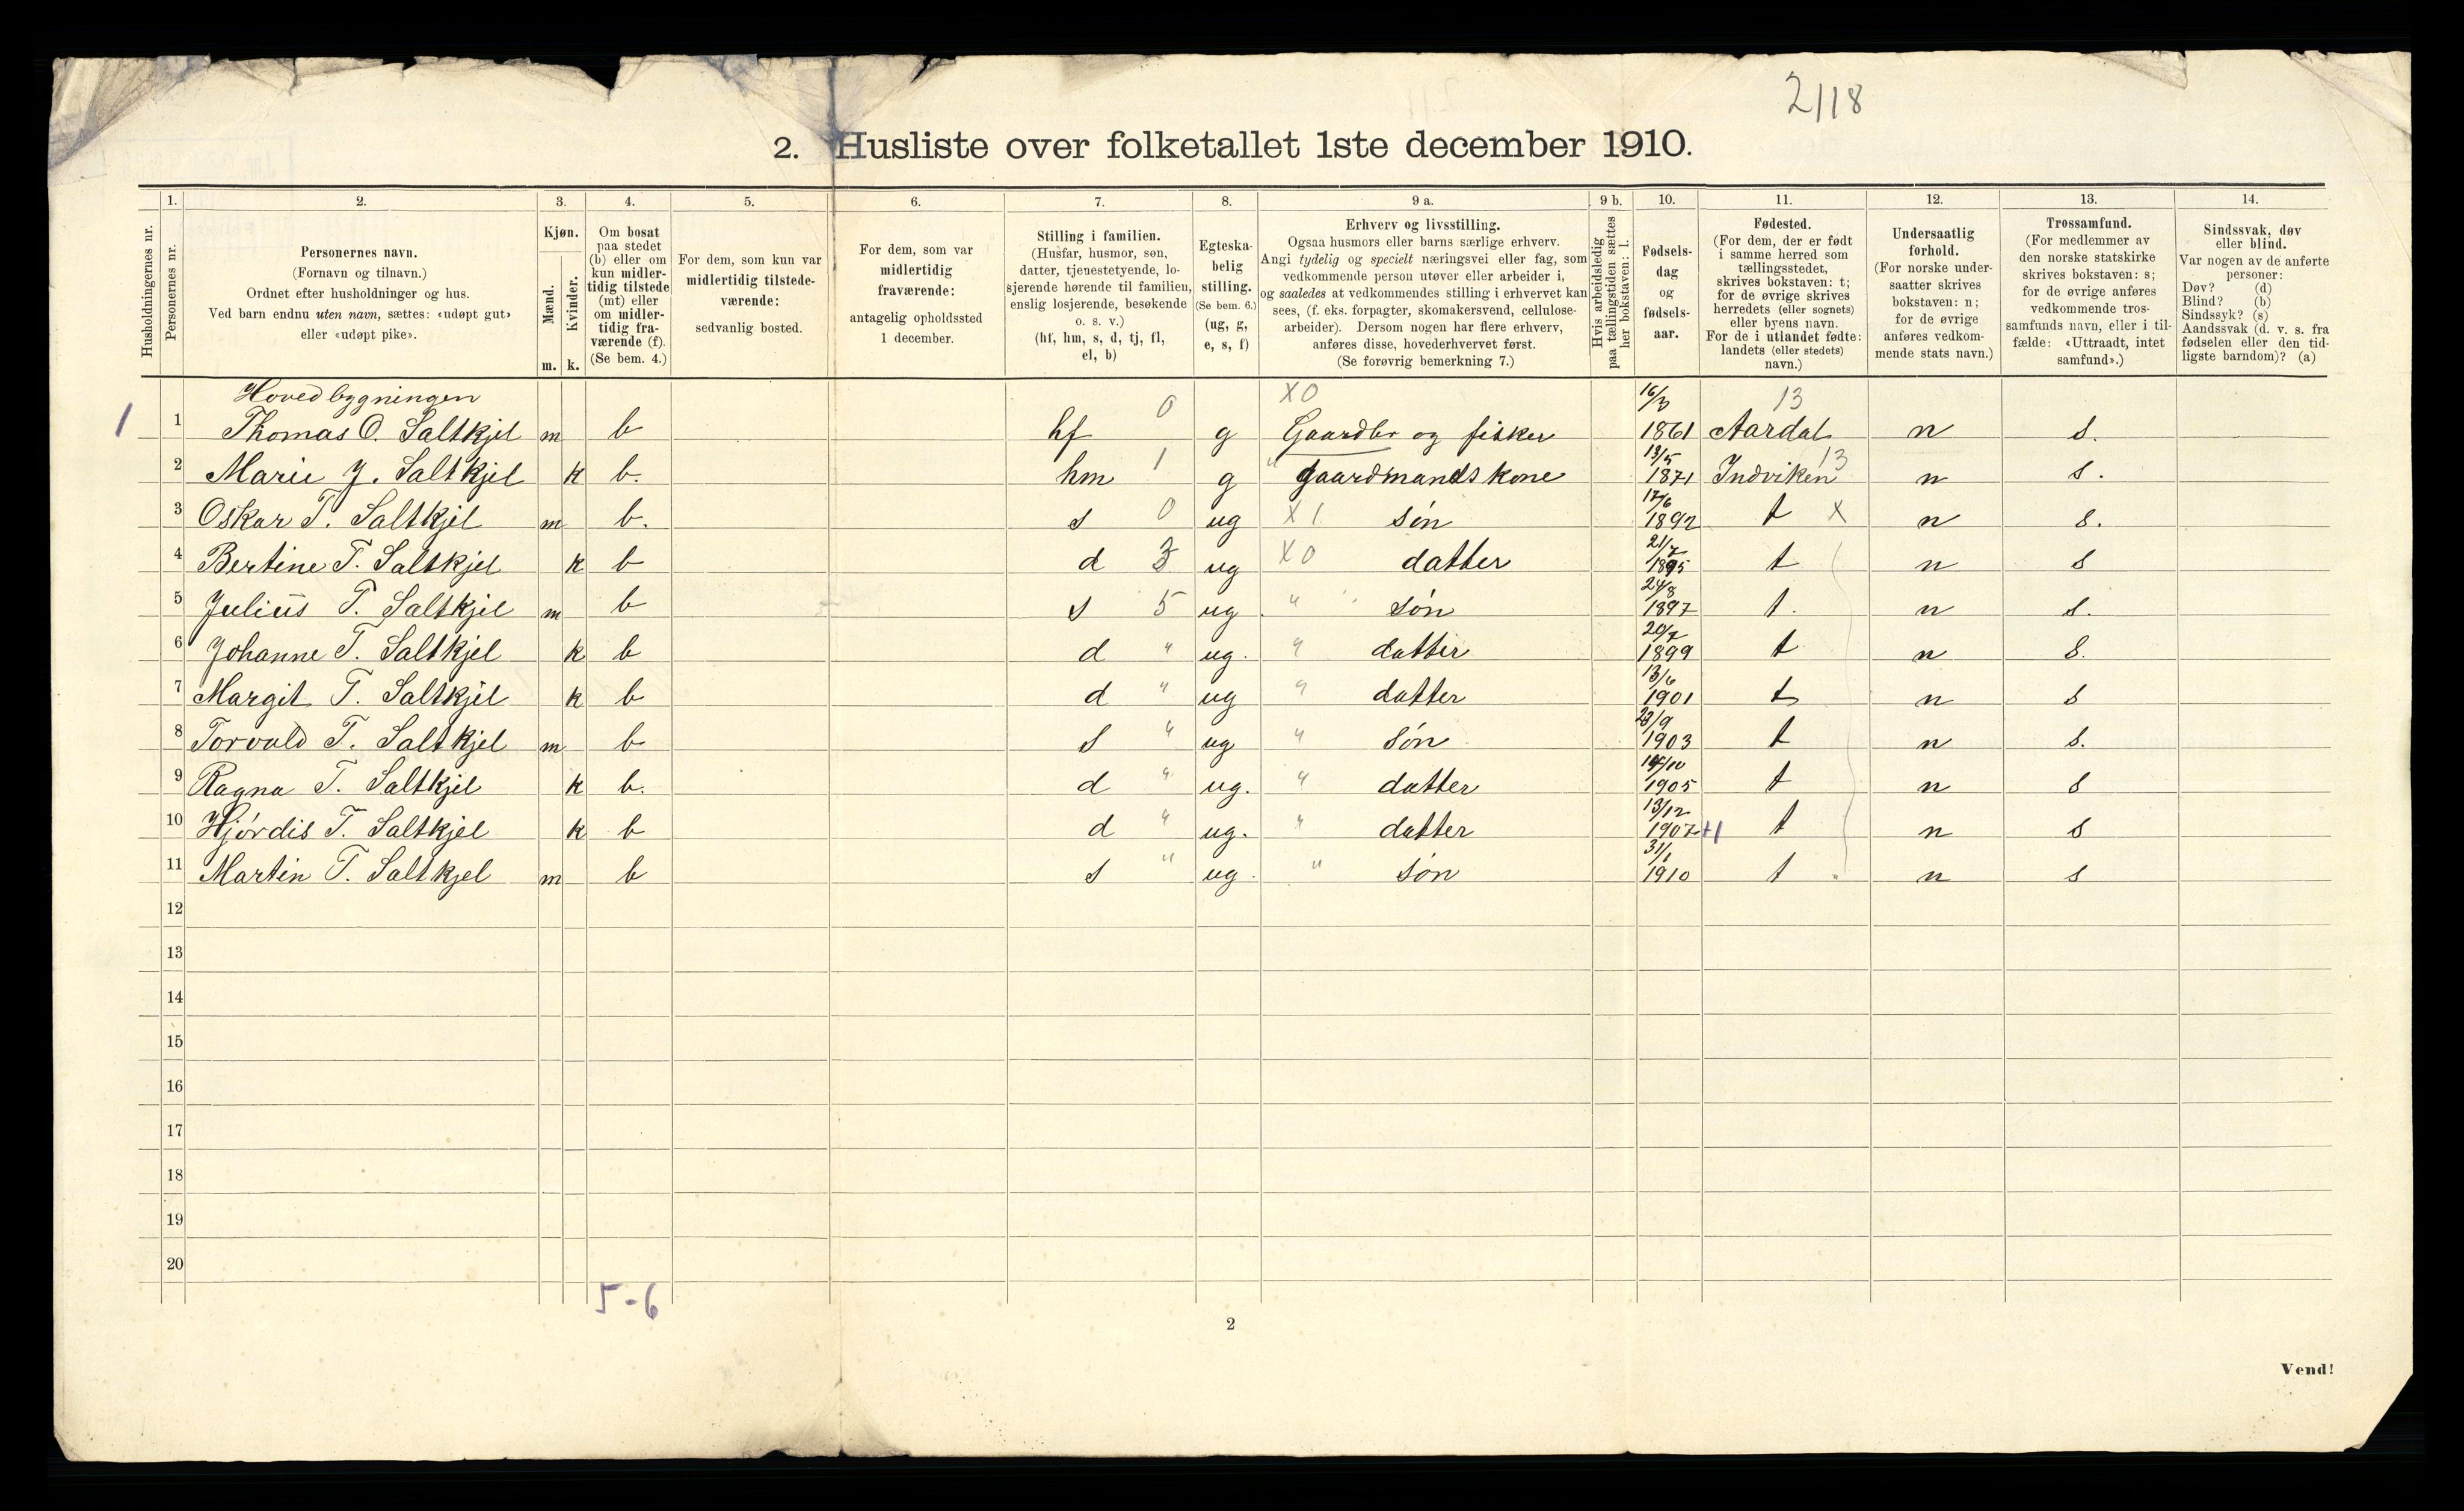 2118
2. Husliste over folketallet 1ste december 1910.
1. 2. 3. 4. 5. 6. 7. 8. 9 a. 9 b. 10. 11. 12. 13. 14.
Husholdningernes nr.
Personernes nr.
Personernes navn.
(Fornavn og tilnavn.)
Ordnet efter husholdninger og hus.
Ved barn endnu uten navn, sættes: «udøpt gut»
eller «udøpt pike».
Kjøn.
Mænd.
Kvinder.
m. k.
Om bosat
paa stedet
(b) eller om
kun midler-
tidig tilstede
(mt) eller
om midler-
tidig fra-
værende (f).
(Se bem. 4.)
For dem, som kun var
midlertidig tilstede-
værende:
sedvanlig bosted.
For dem, som var
midlertidig
fraværende:
antagelig opholdssted
1 december.
Stilling i familien.
(Husfar, husmor, søn,
datter, tjenestetyende, lo-
sjerende hørende til familien,
enslig losjerende, besøkende
o. s. v.)
(hf, hm, s, d, tj, fl,
el, b)
Egteska-
belig
stilling.
(Se bem. 6.)
(ug, g,
e, s, f)
Erhverv og livsstilling.
Ogsaa husmors eller barns særlige erhverv.
Angi tydelig og specielt næringsvei eller fag, som
vedkommende person utøver eller arbeider i,
og saaledes at vedkommendes stilling i erhvervet kan
sees, (f. eks. forpagter, skomakersvend, cellulose-
arbeider). Dersom nogen har flere erhverv,
anføres disse, hovederhvervet først.
(Se forøvrig bemerkning 7.)
Hvis arbeidsledig
paa tællingstiden sættes
her bokstaven: l.
Fødsels-
dag
og
fødsels-
aar.
Fødested.
(For dem, der er født
i samme herred som
tællingsstedet,
skrives bokstaven: t;
for de øvrige skrives
herredets (eller sognets)
eller byens navn.
For de i utlandet fødte:
landets (eller stedets)
navn.)
Undersaatlig
forhold.
(For norske under-
saatter skrives
bokstaven: n;
for de øvrige
anføres vedkom-
mende stats navn.)
Trossamfund.
(For medlemmer av
den norske statskirke
skrives bokstaven: s;
for de øvrige anføres
vedkommende tros-
samfunds navn, eller i til-
fælde: «Uttraadt, intet
samfund».)
Sindssvak, døv
eller blind.
Var nogen av de anførte
personer:
Døv? (d)
Blind? (b)
Sindssyk? (s)
Aandssvak (d. v. s. fra
fødselen eller den tid-
ligste barndom)? (a)
Hovedbygningen X0 16/3 13
1 1 Thomas O. Saltkjel m b hf 0 g Gaardbr og fisker 1861 Aardal n s.
13/5 13
2 Marie J. Saltkjel k b. hm 1 g " gaardmandskone 1871 Indviken n s.
17/6
3 Oskar T. Saltkjel m b. s 0 ug X 1 søn 1892 t X n s.
21/7
4 Bertine T. Saltkjel k b d 3 ug X0 datter 1895 t n s
24/8
5 Julius T. Saltkjel m b s 5 ug " søn 1897 t. n s.
20/7
6 Johanne T. Saltkjel k b d " ug. " datter 1899 t n s.
13/6
7 Margit T. Saltkjel k b d " ug " datter 1901 t n s
23/9
8 Torvald T. Saltkjel m b s " ug " søn 1903 t n s.
9 Ragna T. Saltkjel k b. d " ug. " datter 1905 t n s
13/12
10 Hjørdis T. Saltkjel k b d " ug. " datter 1907 +1 t n s
31/1
11 Martin T. Saltkjel m b s " ug. " søn 1910 t n s
12
13
14
15
16
17
18
19
20
5-6
2
Vend!